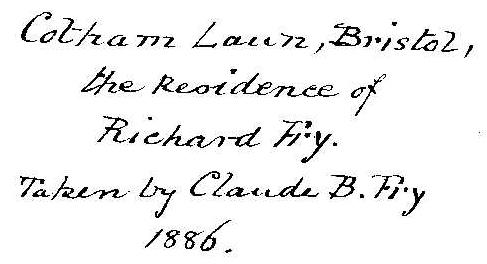 Cotham Lawn, Bristol,
the Residence of
Richard Fry.
Taken by Claude B. Fry
1886.